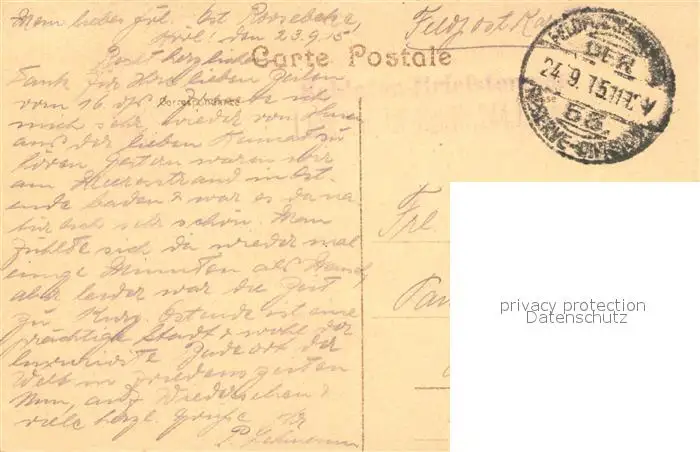 Mein liebes Frl. Ost Roosebeke,
den 23.9.15
Feldpost Ka
Carte Postale
Recht herzlichen
Dank für Ihre lieben Zeilen
vom 16. ds. ich
Correspondance
mich sehr wieder von Ihnen
aus der lieben Heimat zu
hören. Gestern waren wir
am Meeresstrand in Ost
ende baden & war es da na
türlich sehr schön. Man
fühlte sich da wieder mal
einige Minuten als Mensch,
aber leider war die Zeit
zu kurz. Ostende ist eine
prächtige Stadt & wohl der
luxuriöste Badeort der
Welt in Friedenszeiten
Nun, auf Wiedersehen &
viele herzl. Grüße Ihr
P. Lehmann
DER
24.9.15 11-12 V
53
RESERVE-DIVISION
Frl.
privacy protection
Datenschutz